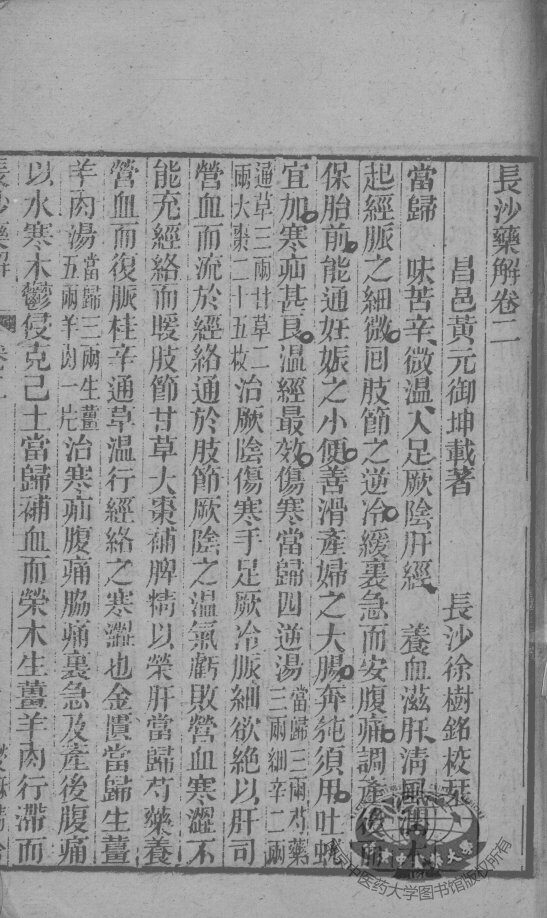 長沙藥解卷二
昌邑黃元御坤載著 長沙徐樹銘校栞
當歸 味苦辛微溫入足厥陰肝經 養血滋肝清風潤木
起經脈之細微回肢節之逆冷緩裏急而安腹痛調產後而
保胎前能通妊娠之小便善滑產婦之大腸奔㹠須用吐蚘
宜加寒疝甚良溫經最效傷寒當歸四逆湯當歸三兩芍藥三兩細辛二兩
通草三兩甘草二兩大棗二十五枚治厥陰傷寒手足厥冷脈細欲絕以肝司
營血而流於經絡通於肢節厥陰之溫氣虧敗營血寒澀不
能充經絡而暖肢節甘草大棗補脾精以榮肝當歸芍藥養
營血而復脈桂辛通草溫行經絡之寒澀也金匱當歸生薑
羊肉湯當歸三兩生薑五兩羊肉一片治寒疝腹痛脇痛裏急及產後腹痛
以水寒木鬱侵克己土當歸補血而榮木生薑羊肉行滯而
長沙藥解 卷二
南京中医药大学图书馆版权所有